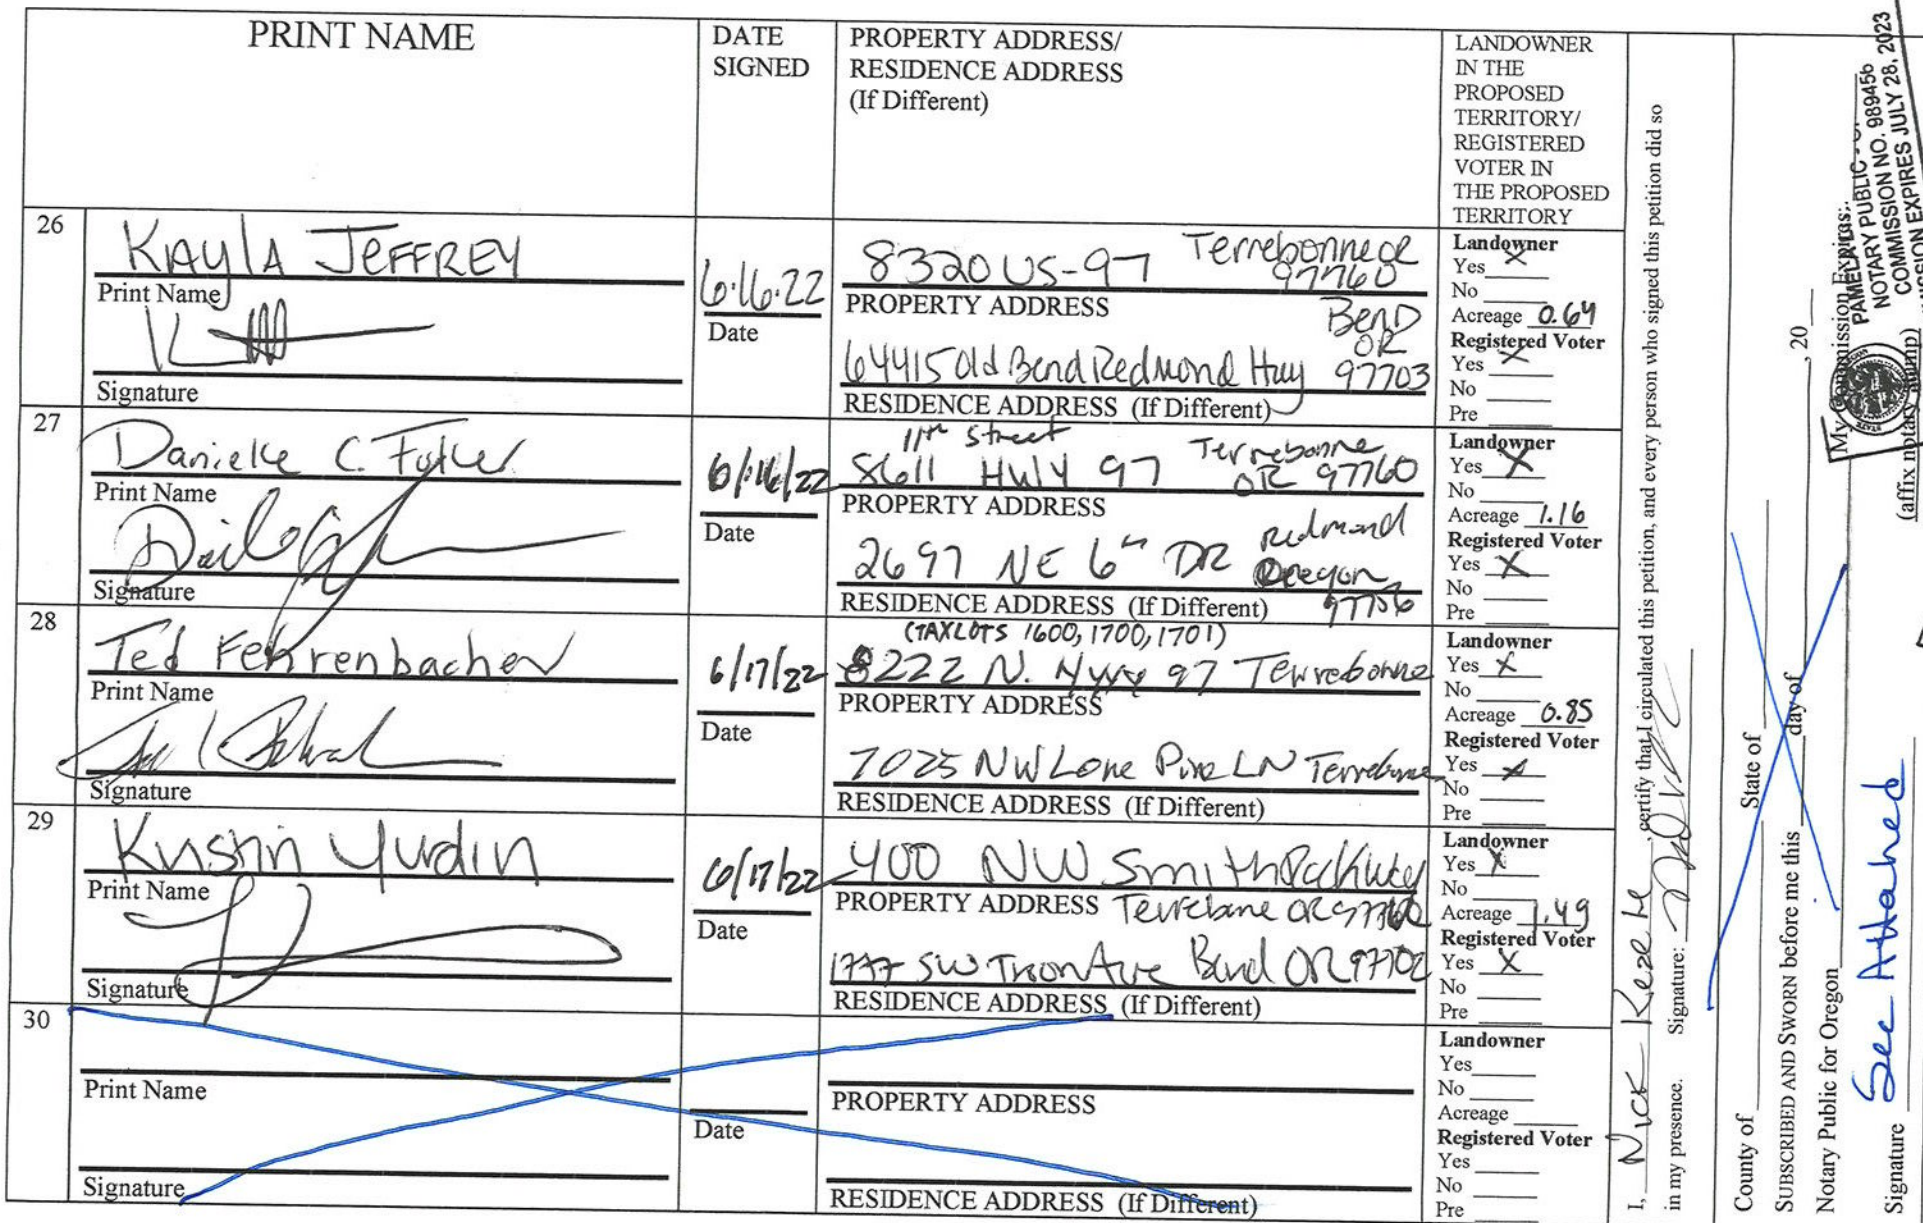 PRINT NAME
DATE
SIGNED
PROPERTY ADDRESS/
RESIDENCE ADDRESS
(If Different)
LANDOWNER
IN THE
PROPOSED
TERRITORY/
REGISTERED
VOTER IN
THE PROPOSED
TERRITORY
26
KAYLA JEFFREY
Print Name
Signature
6.16.22
Date
8320 US-97 Terrebonne OR
97760
PROPERTY ADDRESS
Bend
OR
64415 Old Bend Redmond Hwy 97703
RESIDENCE ADDRESS (If Different)
Landowner
Yes X
No
Acreage 0.64
Registered Voter
Yes X
No
Pre
27
Danielle C. Fuller
Print Name
Signature
6/16/22
Date
11th Street
8611 HWY 97 Terrebonne
OR 97760
PROPERTY ADDRESS
2697 NE 6th DR Redmond
Oregon
97756
RESIDENCE ADDRESS (If Different)
Landowner
Yes X
No
Acreage 1.16
Registered Voter
Yes X
No
Pre
28
Ted Fehrenbacher
Print Name
Signature
6/17/22
Date
(TAXLOTS 1600, 1700, 1701)
8222 N. Hwy 97 Terrebonne
PROPERTY ADDRESS
7025 NW Lone Pine LN Terrebonne
RESIDENCE ADDRESS (If Different)
Landowner
Yes X
No
Acreage 0.85
Registered Voter
Yes X
No
Pre
29
Kristin Yurdin
Print Name
Signature
6/17/22
Date
400 NW Smith Rock Way
PROPERTY ADDRESS Terrebonne OR 97760
1747 SW Troon Ave Bend OR 97702
RESIDENCE ADDRESS (If Different)
Landowner
Yes X
No
Acreage 1.49
Registered Voter
Yes X
No
Pre
30
Print Name
Signature
Date
PROPERTY ADDRESS
RESIDENCE ADDRESS (If Different)
Landowner
Yes
No
Acreage
Registered Voter
Yes
No
Pre
I, Nick , certify that I circulated this petition, and every person who signed this petition did so
in my presence. Signature:
County of State of
SUBSCRIBED AND SWORN before me this day of , 20
Notary Public for Oregon My Commission Expires:
Signature See Attached (affix notary stamp)
PAMELA
NOTARY PUBLIC
COMMISSION NO. 989456
COMMISSION EXPIRES JULY 28, 2023